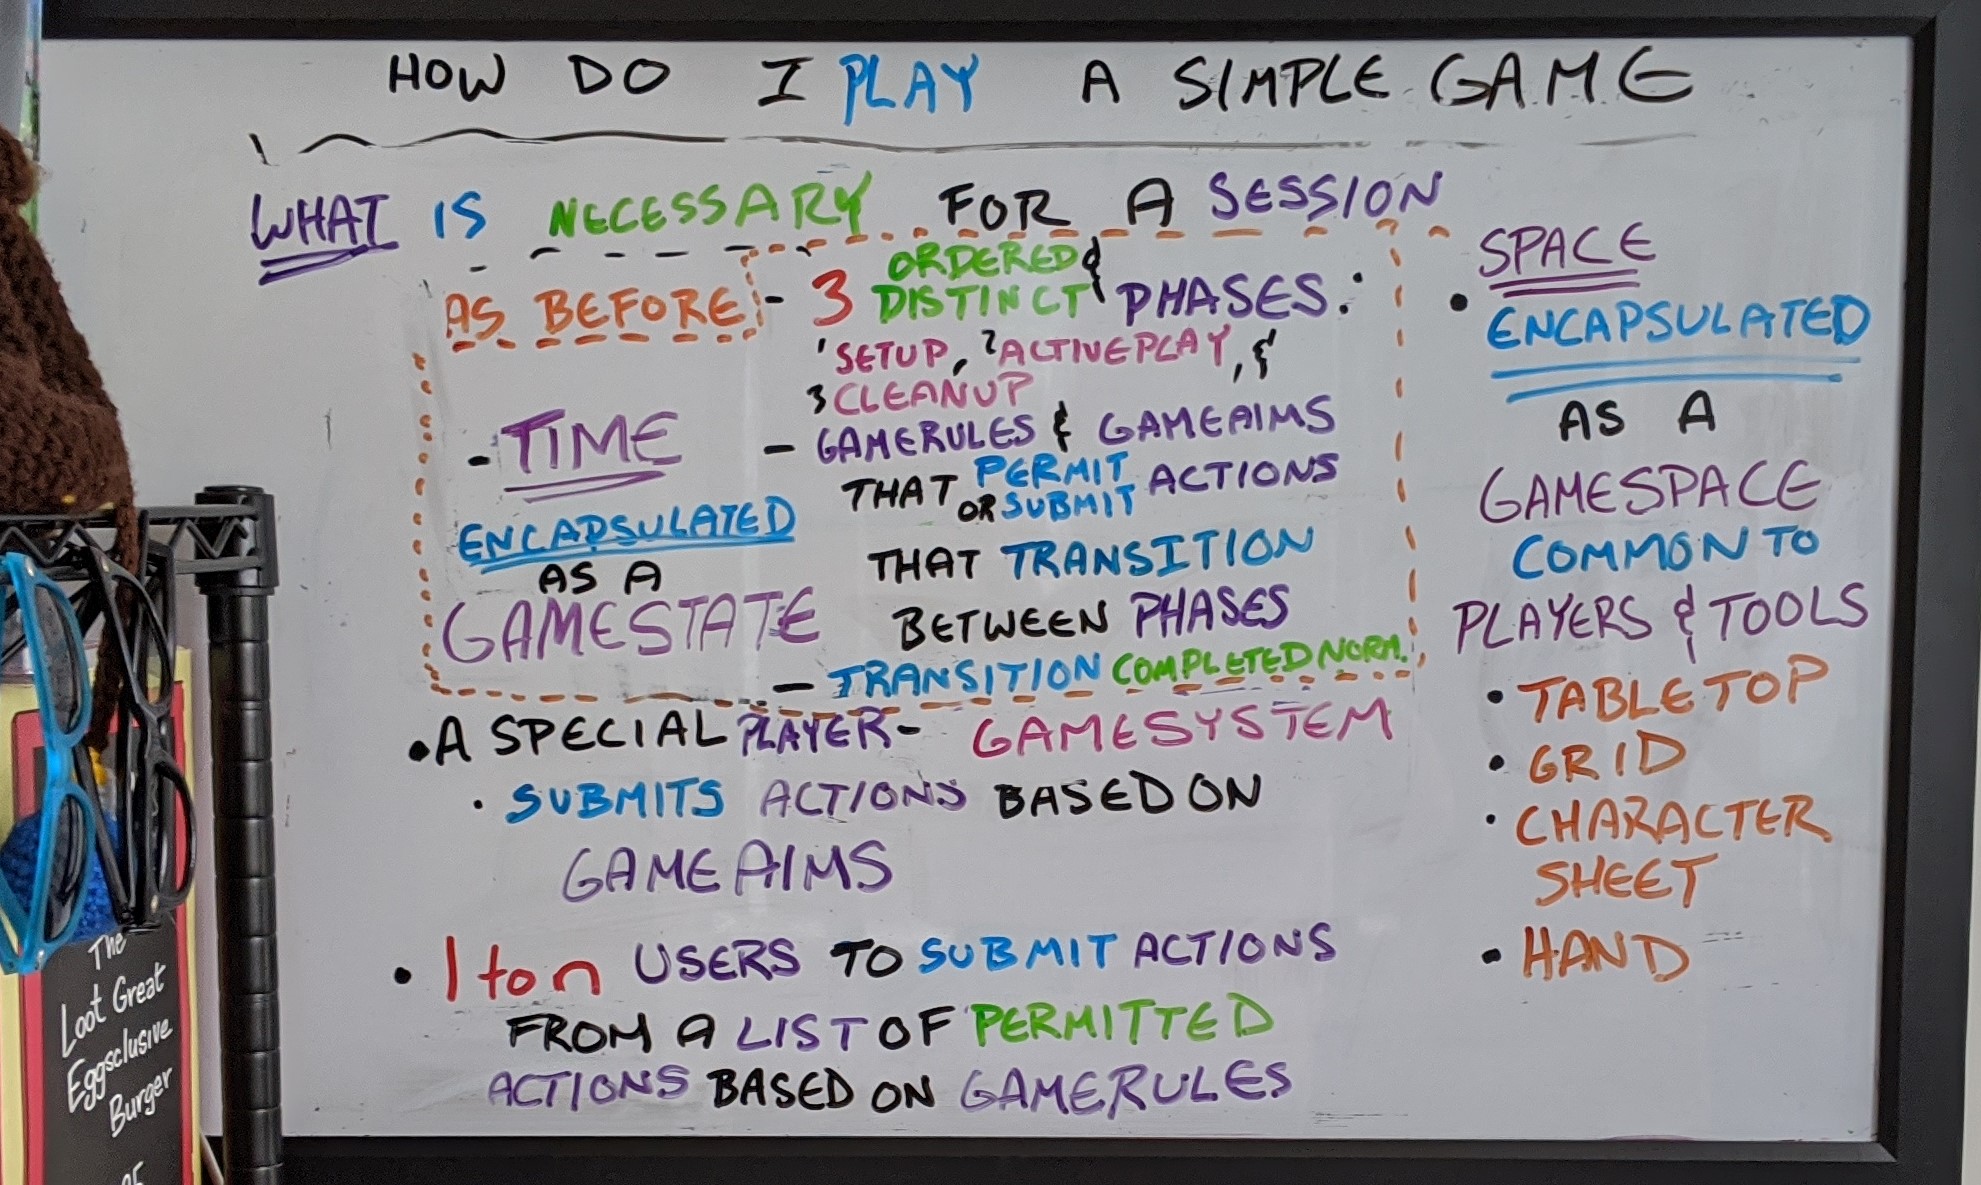 HOW DO I PLAY A SIMPLE GAME
WHAT IS NECESSARY FOR A SESSION
AS BEFORE
- TIME
ENCAPSULATED
AS A
GAMESTATE
- 3 ORDERED & DISTINCT PHASES:
1 SETUP, 2 ACTIVEPLAY, &
3 CLEANUP
- GAMERULES & GAMEAIMS
THAT PERMIT OR SUBMIT ACTIONS
THAT TRANSITION
BETWEEN PHASES
- TRANSITION COMPLETED NORM.
• A SPECIAL PLAYER - GAMESYSTEM
• SUBMITS ACTIONS BASED ON
GAMEAIMS
• 1 to n USERS TO SUBMIT ACTIONS
FROM A LIST OF PERMITTED
ACTIONS BASED ON GAMERULES
• SPACE
ENCAPSULATED
AS A
GAMESPACE
COMMON TO
PLAYERS & TOOLS
• TABLETOP
• GRID
• CHARACTER
SHEET
• HAND
The
Loot Great
Eggsclusive
Burger